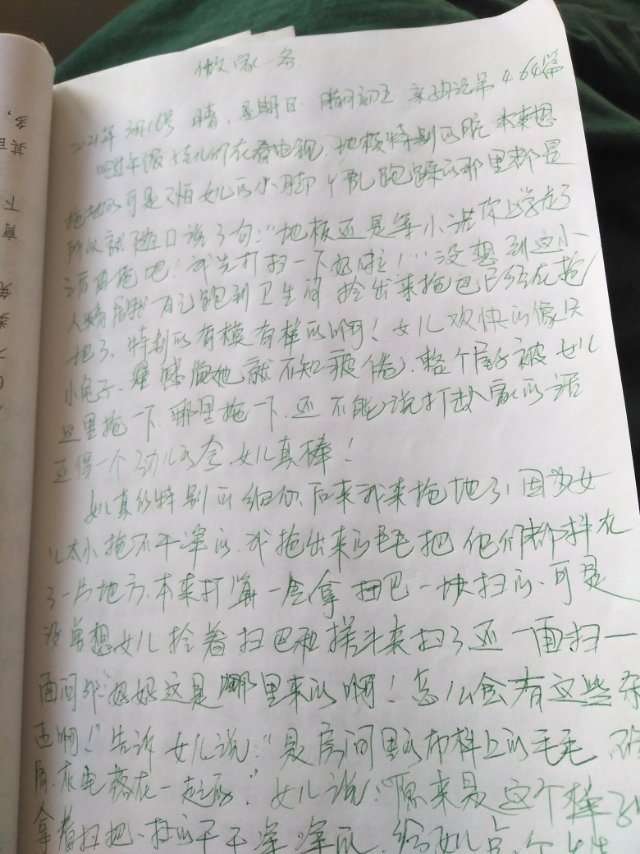 做家务
2021年3月16号 晴 星期日 亲子日记第464篇
吃过午饭 女儿们在看电视 地板特别的脏 本来想
拖地的可是又怕女儿的小脚丫乱跑踩的那里都是
所以就随口说了句:"地板还是等小洁你上学走了
后再拖吧!我先打扫一下好啦!… 没想到这小
人精居然自己跑到卫生间 拎出来拖把已经在拖
地了、特别的有模有样的啊!女儿欢快的像只
小兔子、她就不知疲倦、整个屋子被女儿
这里拖一下、哪里拖一下、还不能说打击家的话
女儿真棒!
女儿真的特别的细心 后来我来拖地了、因为女
儿太小拖不干净的、我拖出来的毛毛把他们都抖在
了一片地方、本来打算一会拿扫巴一块扫的、可是
没曾想女儿拎着扫巴和撮斗来扫了还一面扫一
面问我"妈妈这是哪里来的啊!怎么会有这些东
西啊!"告诉女儿说:"是房间里的布料上的毛毛、
灰尘落在一起的。"女儿说:"原来是这个样子
拿着扫把、扫的干干净净的、给女儿点个